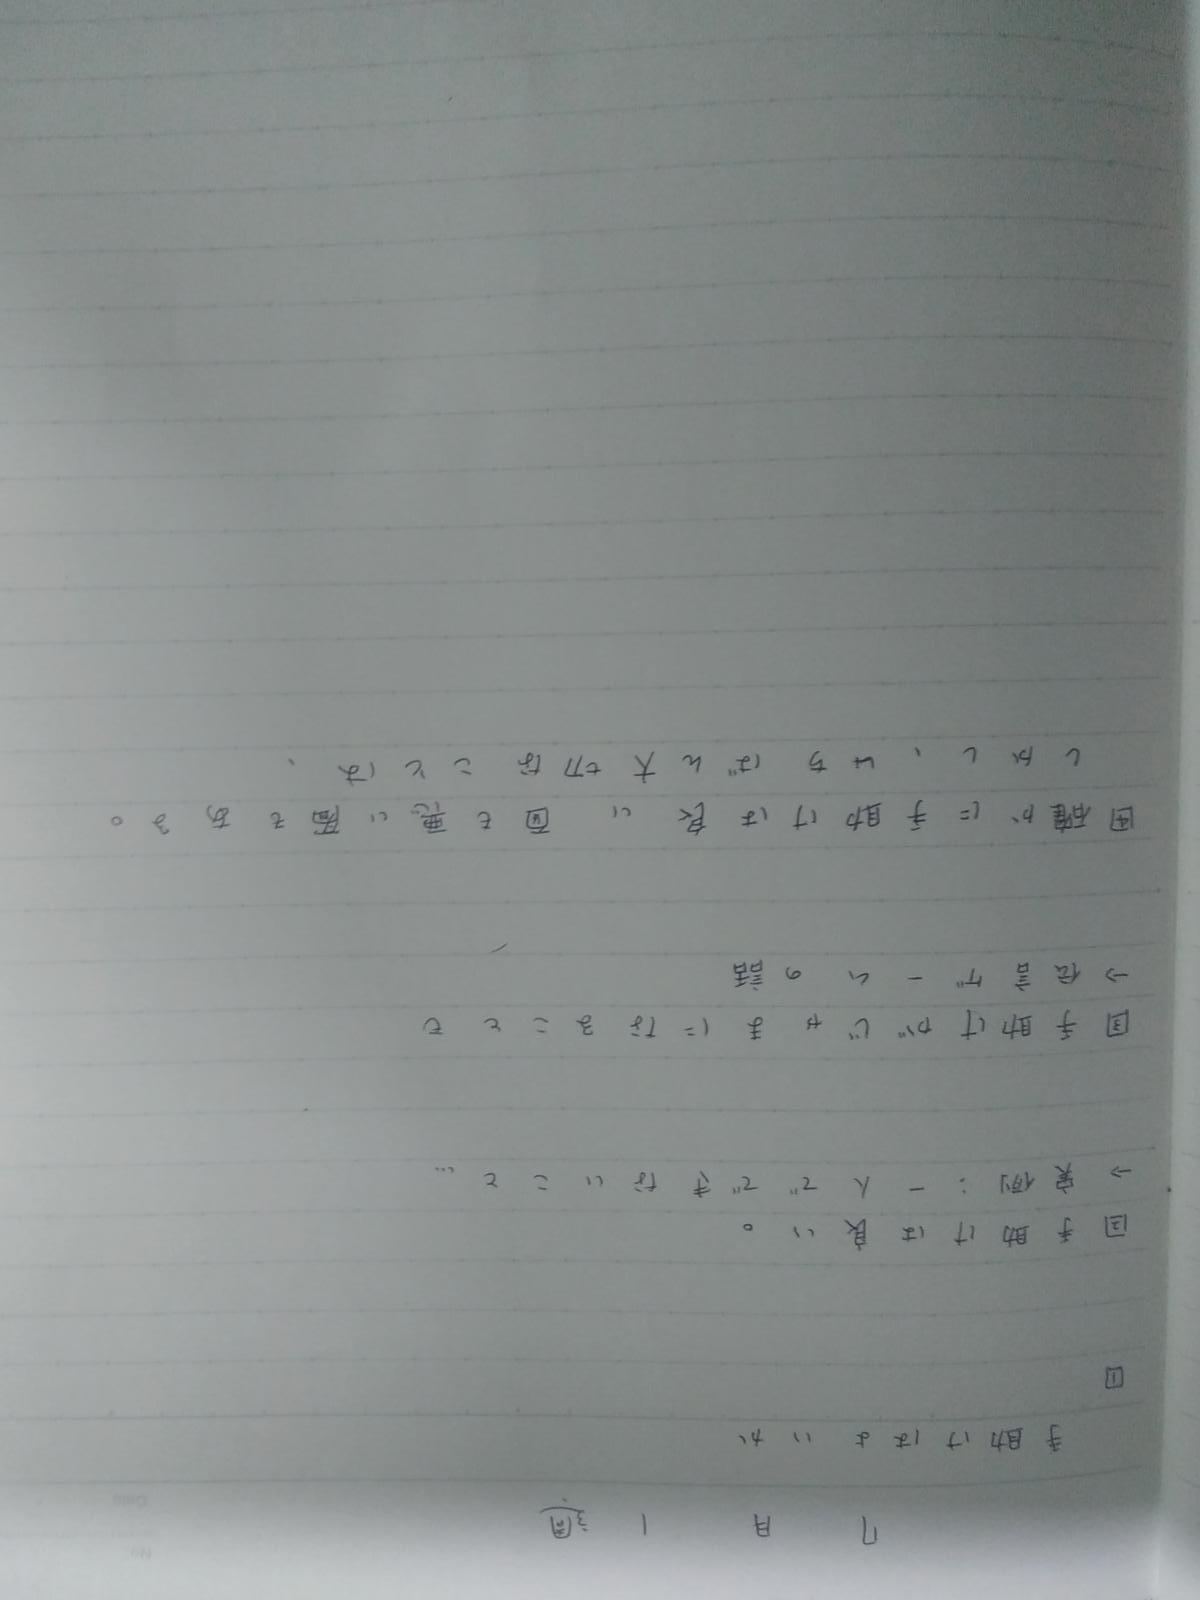 No.
Date
7月 1週
手助けはよいか
1
2 手助けは良い。
→ 実例:一人でできないこと…
3 手助けがじゃまになることも
→ 伝言ゲームの話
4 確かに手助けは良い面も悪い面もある。
しかし、いちばん大切なことは、